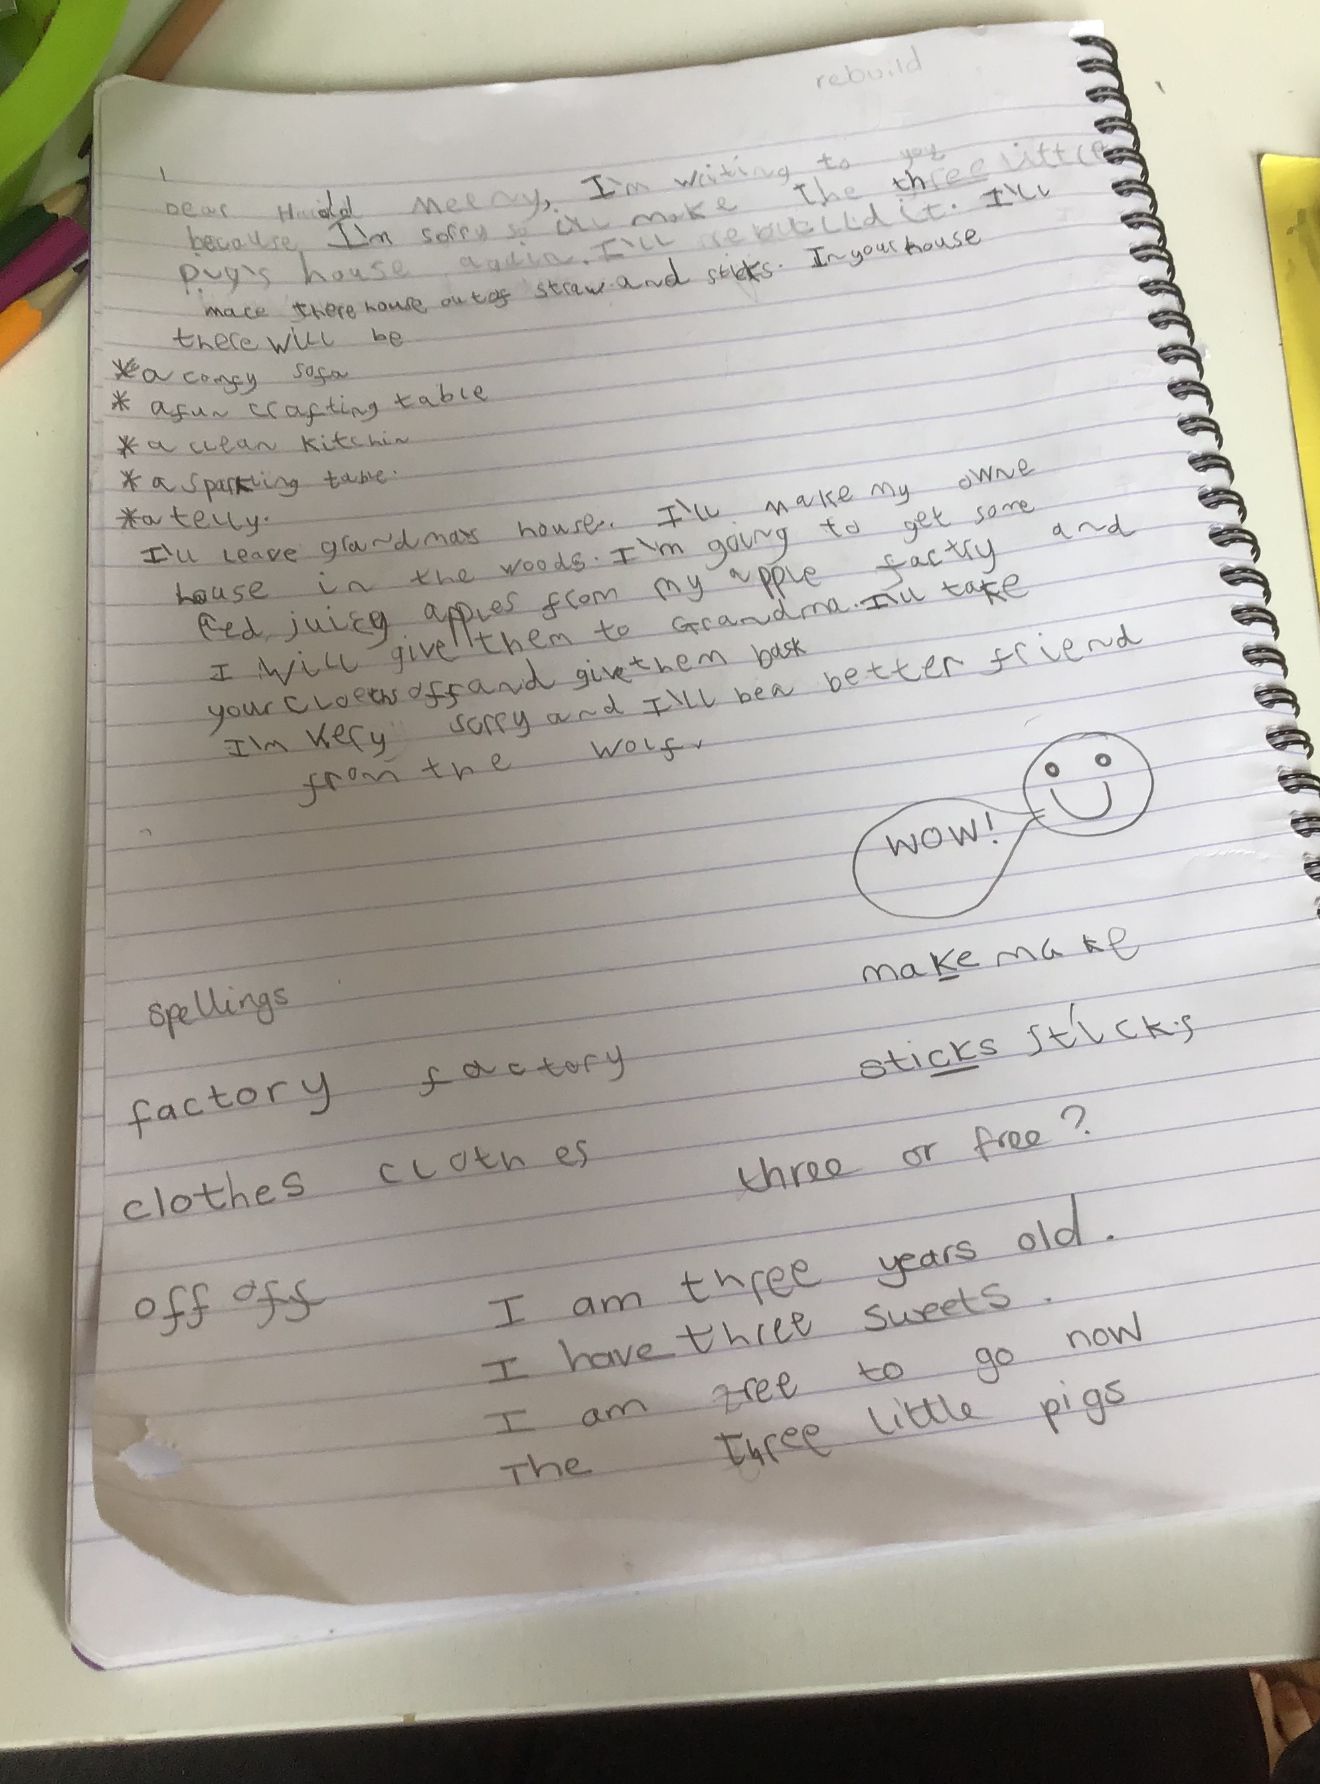 rebuild
Dear Harold Meerry, I'm writing to you
because I'm sorry so i'll make The three little
pug's house again. I'll rebuilld it. I'll
mace there house out of straw and sticks. In your house
there will be
*a comfy sofa
* a fun crafting table
*a clean kitchin
*a sparkling table.
*a telly.
I'll leave grandmas house. I'll make my owne
house in the woods. I'm going to get some
red, juicy apples from my apple factry and
I will give them to Grandma. I'll take
your cloeths off and give them back
I'm very sorry and I'll be a better friend
from the wolf.
WOW!
spellings
make make
factory factory
sticks sticks
clothes clothes
three or free?
off off
I am three years old.
I have three sweets.
I am free to go now
The three little pigs